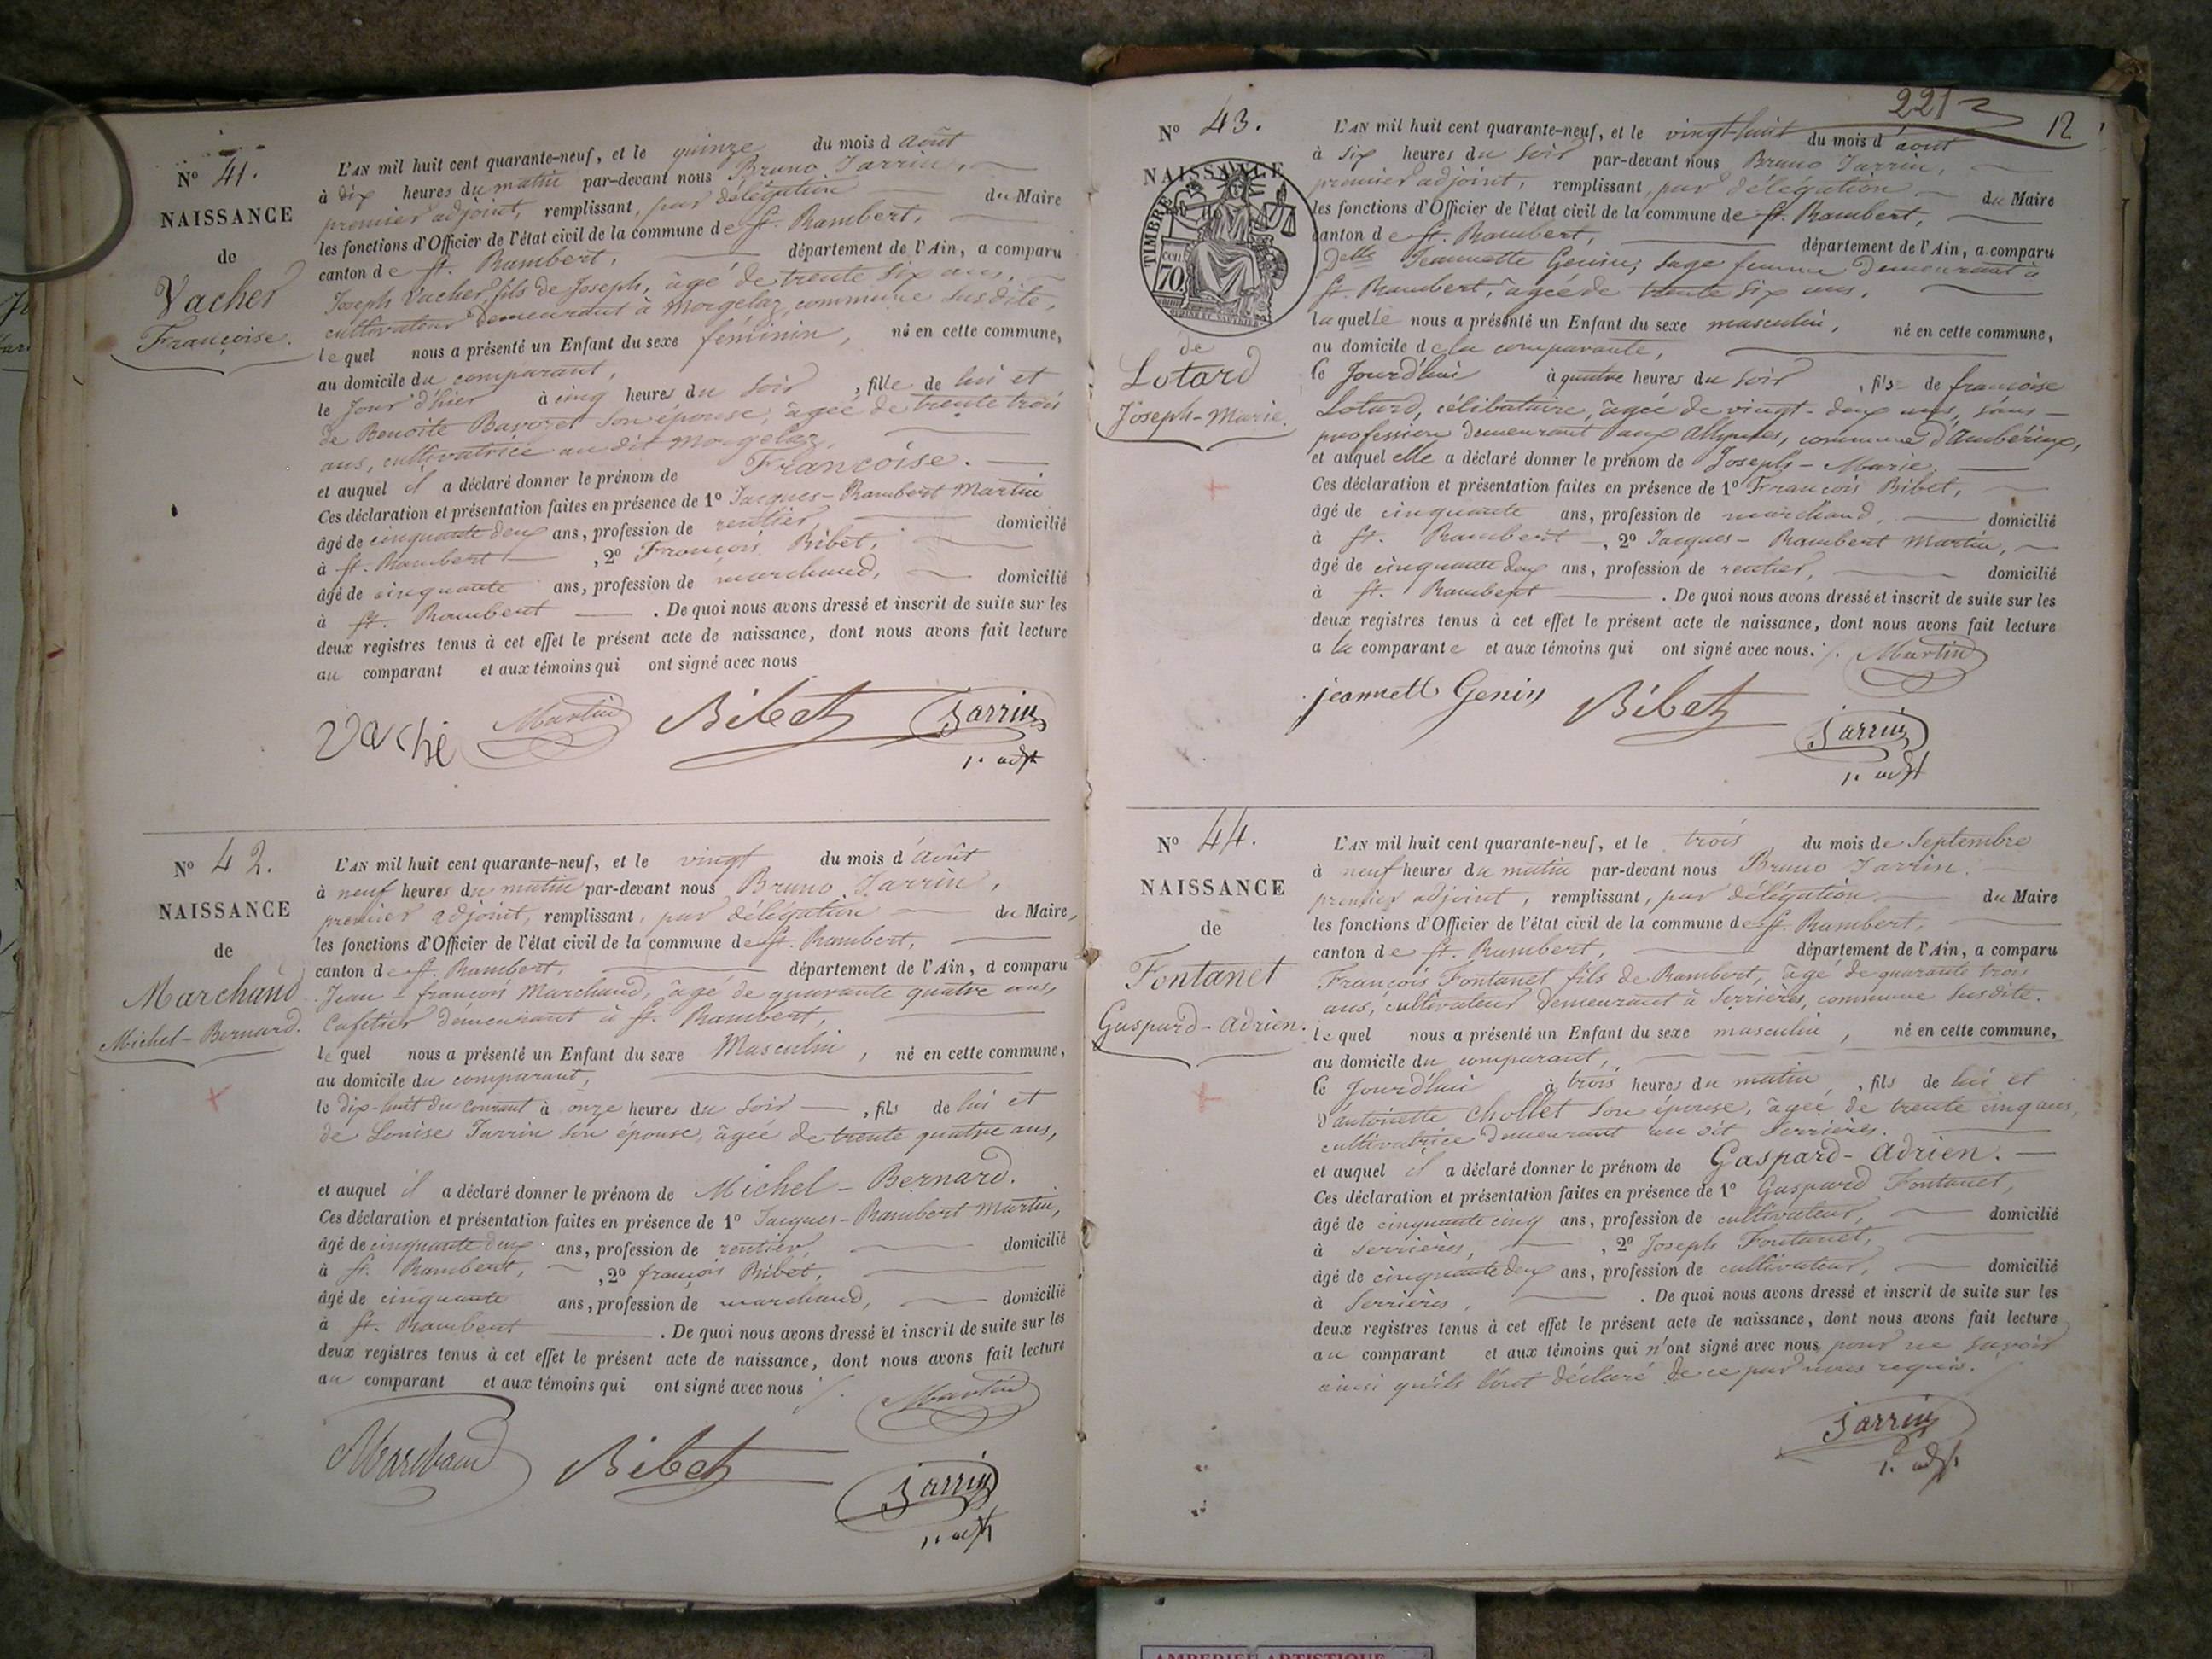 N° 41.
NAISSANCE
de
Vacher
Françoise.
L'AN mil huit cent quarante-neuf, et le quinze du mois d août
à dix heures du matin par-devant nous Bruno Jarrin,
premier adjoint, remplissant, par délégation du Maire
les fonctions d'Officier de l'état civil de la commune de St. Rambert,
canton de St. Rambert, département de l'Ain, a comparu
Joseph Vacher, fils de Joseph, âgé de trente six ans,
cultivateur demeurant à Morgelaz, commune susdite,
lequel nous a présenté un Enfant du sexe féminin, né en cette commune,
au domicile du comparant,
le jour d'hier à cinq heures du soir, fille de lui et
de Benoite Bavozet son épouse, âgée de trente trois
ans, cultivatrice au dit Morgelaz.
et auquel il a déclaré donner le prénom de Françoise.
Ces déclaration et présentation faites en présence de 1° Jacques-Rambert Martin
âgé de cinquante deux ans, profession de rentier, domicilié
à St. Rambert, 2° François Bibet,
âgé de cinquante ans, profession de marchand, domicilié
à St. Rambert. De quoi nous avons dressé et inscrit de suite sur les
deux registres tenus à cet effet le présent acte de naissance, dont nous avons fait lecture
au comparant et aux témoins qui ont signé avec nous
Vaché Martin Bibet Jarrin
1. adjt
N° 42.
NAISSANCE
de
Marchand
Michel-Bernard.
L'AN mil huit cent quarante-neuf, et le vingt du mois d'août
à neuf heures du matin par-devant nous Bruno Jarrin,
premier adjoint, remplissant, par délégation du Maire,
les fonctions d'Officier de l'état civil de la commune de St. Rambert,
canton de St. Rambert, département de l'Ain, a comparu
Jean-françois Marchand, âgé de quarante quatre ans,
Cafetier demeurant à St. Rambert,
lequel nous a présenté un Enfant du sexe Masculin, né en cette commune,
au domicile du comparant,
le dix-huit du courant à onze heures du soir, fils de lui et
de Louise Jarrin son épouse, âgée de trente quatre ans,
et auquel il a déclaré donner le prénom de Michel-Bernard.
Ces déclaration et présentation faites en présence de 1° Jacques-Rambert Martin,
âgé de cinquante deux ans, profession de rentier, domicilié
à St. Rambert, 2° françois Bibet,
âgé de cinquante ans, profession de marchand, domicilié
à St. Rambert. De quoi nous avons dressé et inscrit de suite sur les
deux registres tenus à cet effet le présent acte de naissance, dont nous avons fait lecture
au comparant et aux témoins qui ont signé avec nous
Martin
Marchand Bibet Jarrin
1. adjt
221
12
N° 43.
NAISSANCE
TIMBRE
70
de
Lotard
Joseph-Marie.
L'AN mil huit cent quarante-neuf, et le vingt-huit du mois d'août
à six heures du soir par-devant nous Bruno Jarrin,
premier adjoint, remplissant, par délégation du Maire
les fonctions d'Officier de l'état civil de la commune de St. Rambert,
canton de St. Rambert, département de l'Ain, a comparu
Delle Jeannette Genin, sage femme demeurant à
St. Rambert, âgée de trente six ans,
laquelle nous a présenté un Enfant du sexe masculin, né en cette commune,
au domicile de la comparante,
ce jourd'hui à quatre heures du soir, fils de françoise
Lotard, célibataire, âgée de vingt-deux ans, sans
profession demeurant aux Allymes, commune d'Ambérieux,
et auquel elle a déclaré donner le prénom de Joseph-Marie.
Ces déclaration et présentation faites en présence de 1° François Bibet,
âgé de cinquante ans, profession de marchand, domicilié
à St. Rambert, 2° Jacques-Rambert Martin,
âgé de cinquante deux ans, profession de rentier, domicilié
à St. Rambert. De quoi nous avons dressé et inscrit de suite sur les
deux registres tenus à cet effet le présent acte de naissance, dont nous avons fait lecture
a la comparante et aux témoins qui ont signé avec nous. Martin
jeannette Genin Bibet
Jarrin
1. adjt
N° 44.
NAISSANCE
de
Fontanet
Gaspard-Adrien.
L'AN mil huit cent quarante-neuf, et le trois du mois de Septembre
à neuf heures du matin par-devant nous Bruno Jarrin.
premier adjoint, remplissant, par délégation du Maire
les fonctions d'Officier de l'état civil de la commune de St. Rambert,
canton de St. Rambert, département de l'Ain, a comparu
François Fontanet fils de Rambert, âgé de quarante trois
ans, cultivateur demeurant à Serrières, commune susdite.
lequel nous a présenté un Enfant du sexe masculin, né en cette commune,
au domicile du comparant,
ce jourd'hui à trois heures du matin, fils de lui et
d'antoinette Chollet son épouse, âgée de trente cinq ans,
cultivatrice demeurant au dit Serrières.
et auquel il a déclaré donner le prénom de Gaspard-Adrien.
Ces déclaration et présentation faites en présence de 1° Gaspard Fontanet,
âgé de cinquante cinq ans, profession de cultivateur, domicilié
à Serrières, 2° Joseph Fontanet,
âgé de cinquante deux ans, profession de cultivateur, domicilié
à Serrières, . De quoi nous avons dressé et inscrit de suite sur les
deux registres tenus à cet effet le présent acte de naissance, dont nous avons fait lecture
au comparant et aux témoins qui n'ont signé avec nous pour ne savoir
ainsi qu'ils l'ont déclaré de ce par nous requis.
Jarrin
1. adjt
AMBERIEU ARTISTIQUE